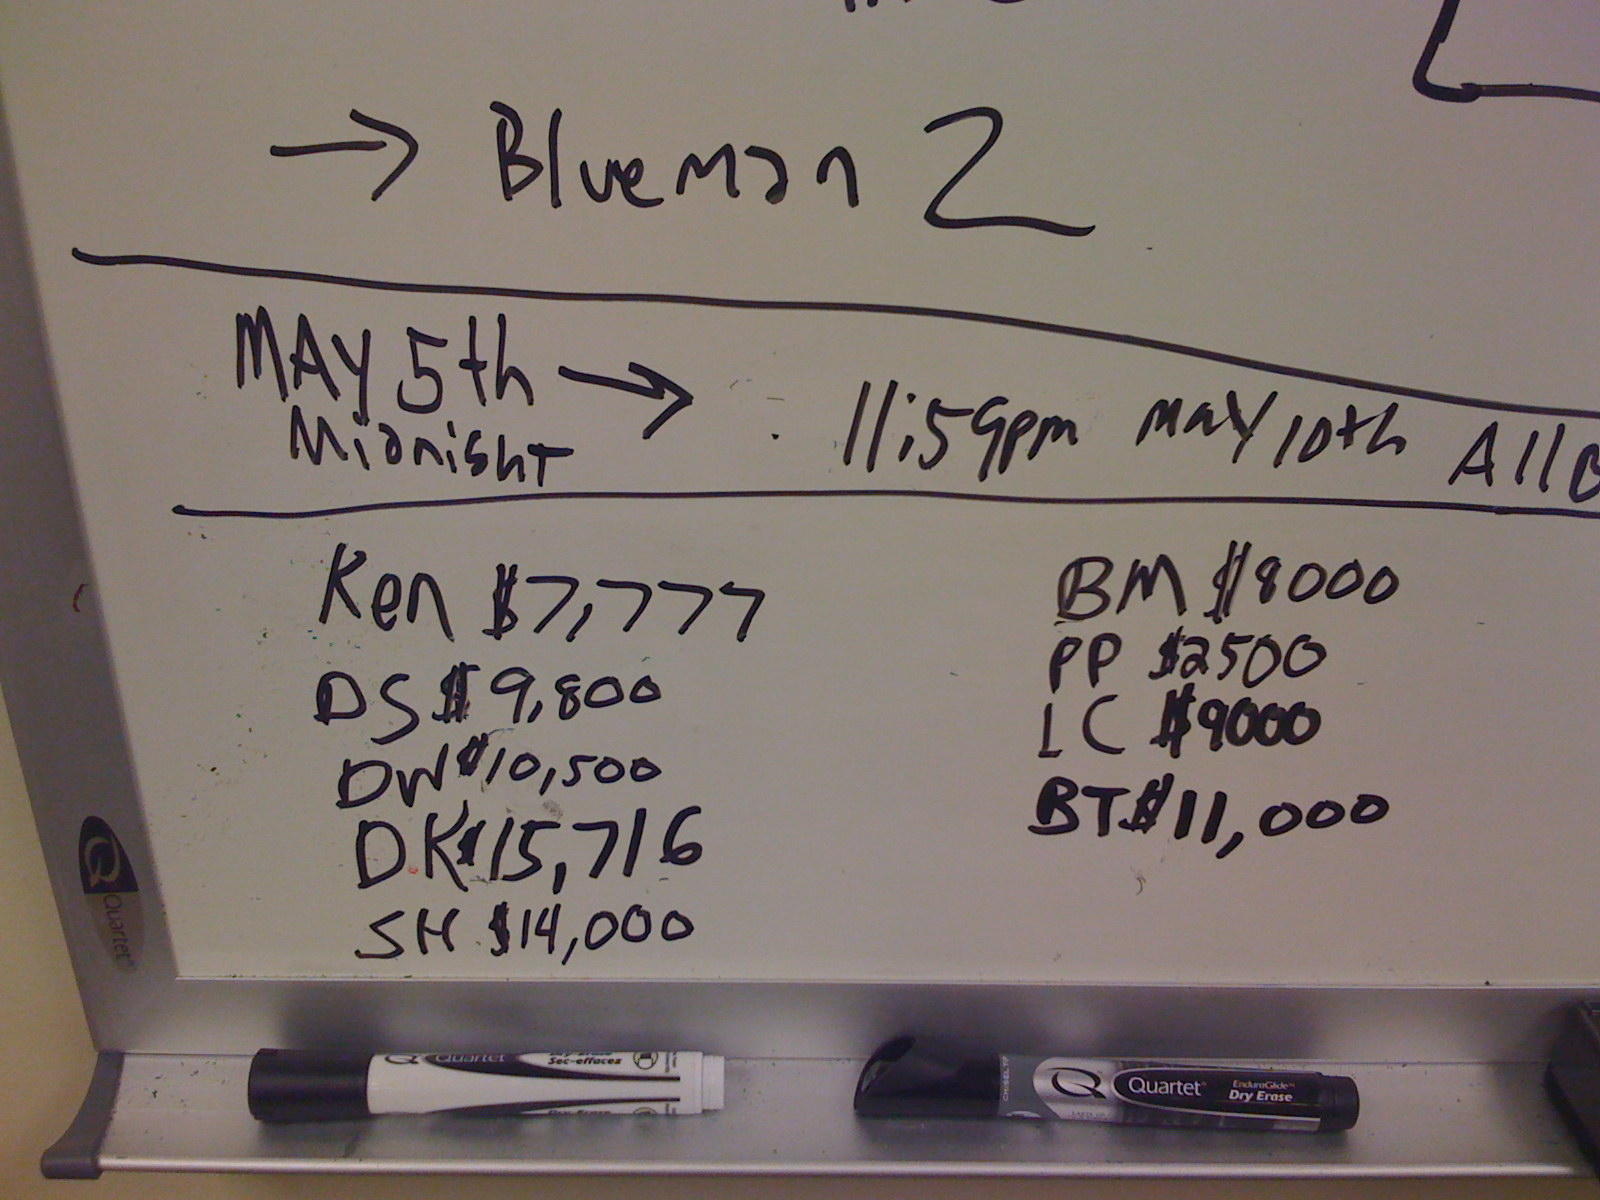 → Blueman 2
MAY 5th → 11:59pm may 10th All
Midnight
Ken $7,777
DS $9,800
DW $10,500
DK $15,716
SH $14,000
BM $8000
PP $2500
LC $9000
BT $11,000
Quartet
Quartet
Dry-Erase
Sec-effacez
Dry-Erase
Quartet
EnduraGlide™
Dry Erase